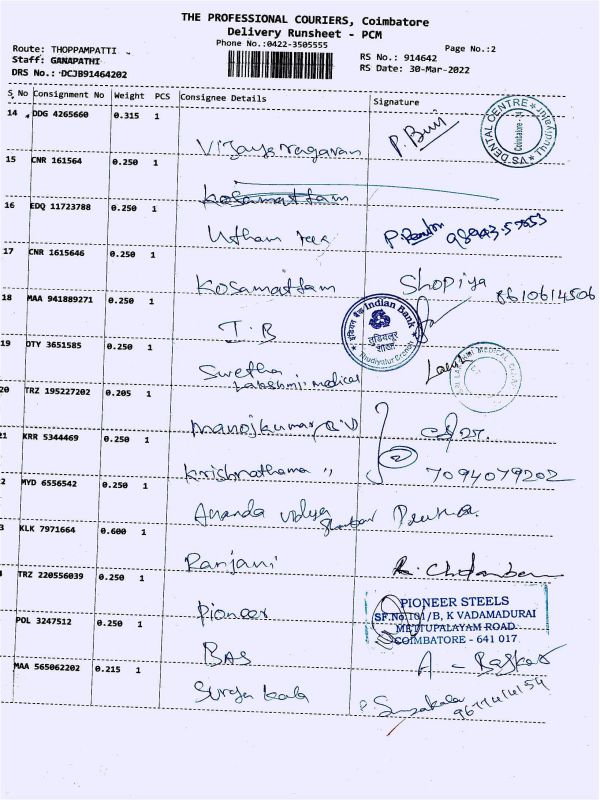 THE PROFESSIONAL COURIERS, Coimbatore
Delivery Runsheet - PCM
Phone No.:0422-3505555
Page No.:2
Route: THOPPAMPATTI
Staff: GANAPATHI
DRS No.: DCJB91464202
RS No.: 914642
RS Date: 30-Mar-2022
S. No Consignment No Weight PCS Consignee Details Signature
14 DDG 4265660 0.315 1
Vijaya ragavan
VS DENTAL CENTRE
Coimbatore
Thudiyalur
15 CNR 161564 0.250 1
Kosamattam
16 EDQ 11723788 0.250 1
Utham
17 CNR 1615646 0.250 1
Kosamattam Shopiya 8610614506
18 MAA 941889271 0.250 1
I.B
इंडियन बैंक Indian Bank
शाखा
Thudiyalur Branch
19 DTY 3651585 0.250 1
Swetha
Lakshmi medical
MEDICAL
20 TRZ 195227202 0.205 1
Manojkumar
21 KRR 5344469 0.250 1
Krishnathama 〃 7094079202
2 MYD 6556542 0.250 1
Ananda vidya
3 KLK 7971664 0.600 1
Ranjani
TRZ 220556039 0.250 1
Pioneer
PIONEER STEELS
SF.No.101/B, K VADAMADURAI
METTUPALAYAM ROAD
COIMBATORE - 641 017
POL 3247512 0.250 1
BAS A - Baskar
MAA 565062202 0.215 1
Surya kala